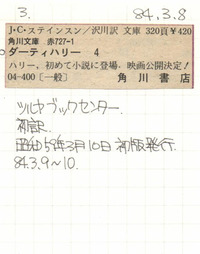 3. 84.3.8
J・C・ステインスン／沢川訳 文庫 320頁¥420
角川文庫 赤727-1
ダーティハリー 4
ハリー，初めて小説に登場。映画公開決定！
04-400〔一般〕 角川書店
ツルヤブックセンター.
初訳.
昭和59年3月10日 初版発行.
84.3.9〜10.